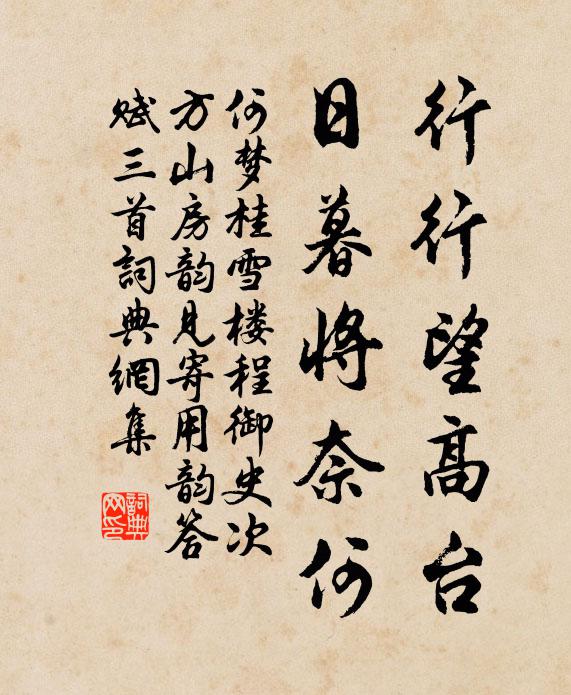 行行望高台
日暮将奈何
何梦桂雪楼程御史次
方山房韵见寄用韵答
赋三首詞典網集
詞典网印